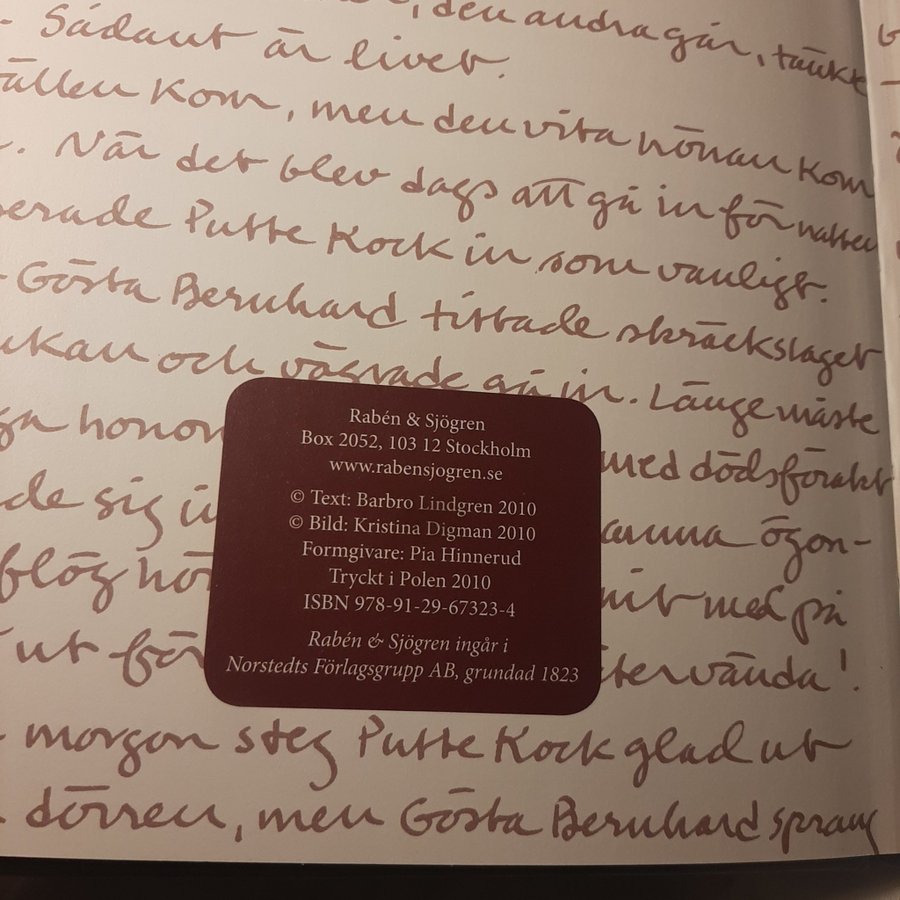 , den andra går, tänkte
- Sådant är livet.
ällen kom, men den vita hönan kom
. När det blev dags att gå in för natten
erade Putte Kock in som vanligt.
Gösta Bernhard tittade skräckslaget
ukan och vägrade gå in. Länge måste
ga honom
med dödsförakt
de sig in
amma ögon-
flög hö
mit med på
ut för
återvända!
morgon steg Putte Kock glad ut
dörren, men Gösta Bernhard sprang
Rabén & Sjögren
Box 2052, 103 12 Stockholm
www.rabensjogren.se
© Text: Barbro Lindgren 2010
© Bild: Kristina Digman 2010
Formgivare: Pia Hinnerud
Tryckt i Polen 2010
ISBN 978-91-29-67323-4
Rabén & Sjögren ingår i
Norstedts Förlagsgrupp AB, grundad 1823